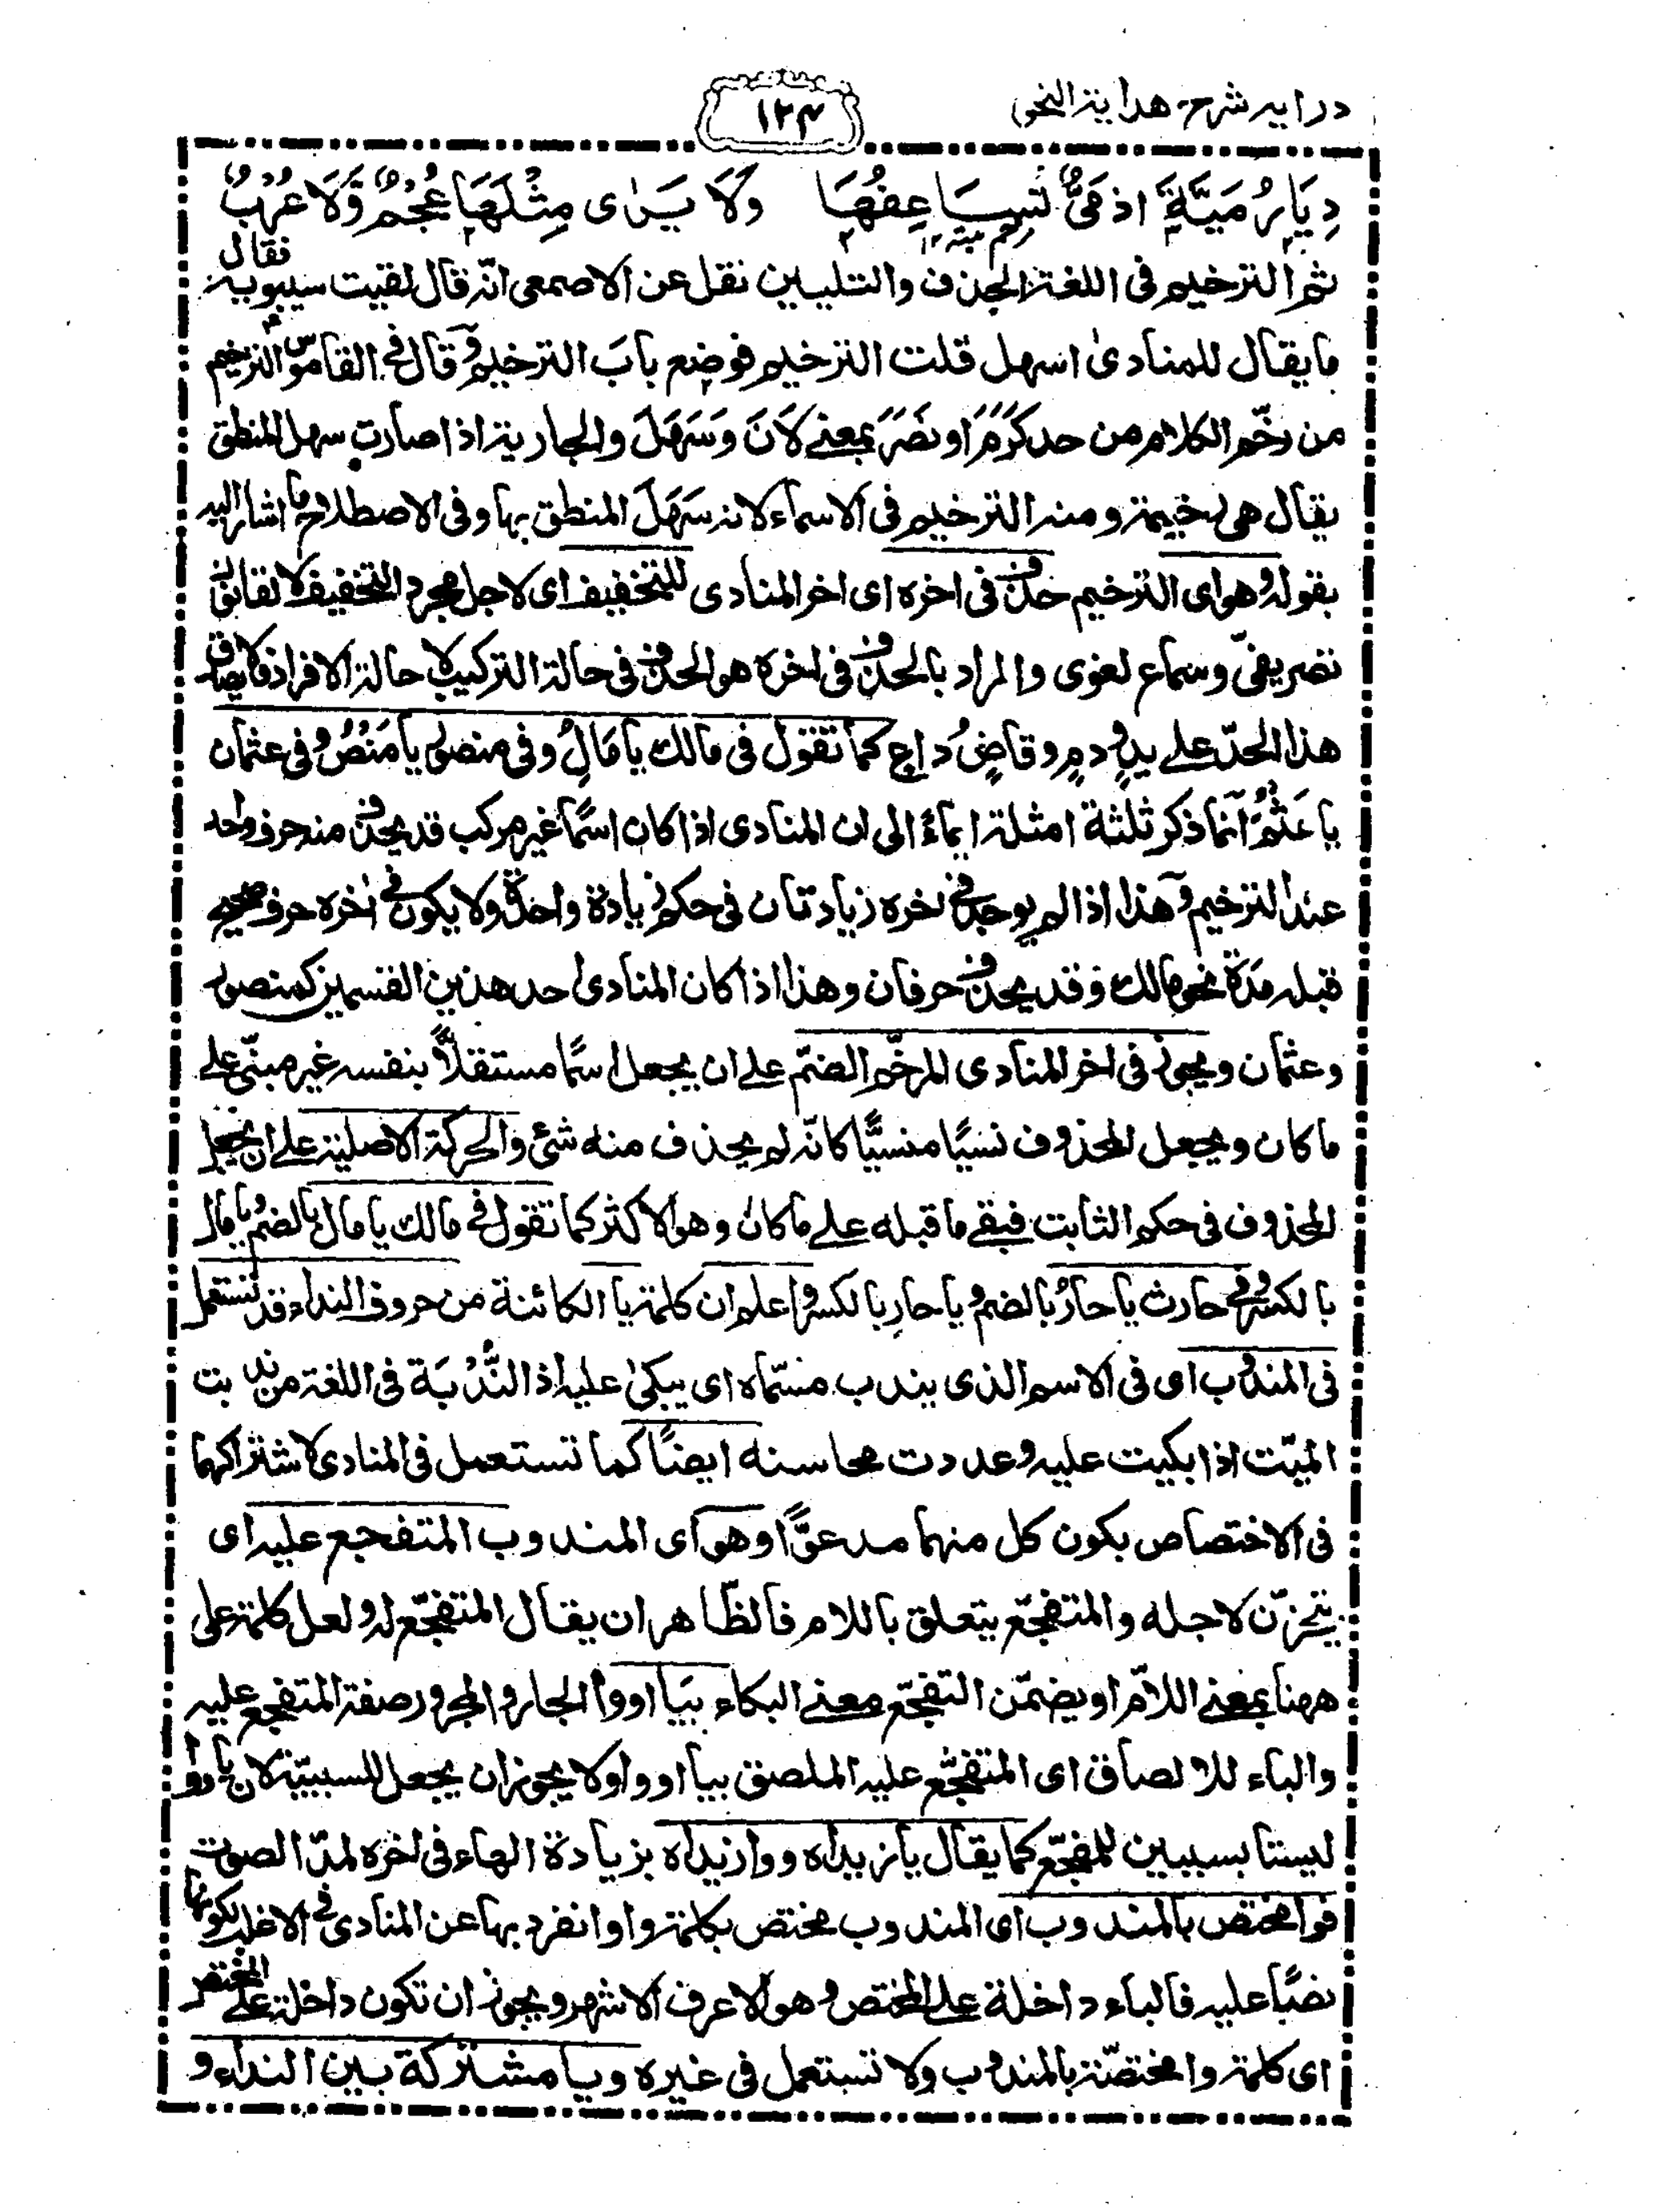 درايه شرح هداية النحو
١٢٤
دِيَارُ مَيَّةَ اذ مَىٌّ تُسَاعِفُهَا ولَا يَرٰى مِثْلَهَا عُجْمٌ وَّلَا عُرْبٌ
ثم الترخيم فى اللغة الحذف والتليين نقل عن الاصمعى انّه قال لقيت سيبويه فقال
ما يقال للمنادىٰ اسهل قلت الترخيم فوضع بابَ الترخيم وقال فى القاموس الترخيم
من رخّم الكلام من حد كَرَمَ او نَصَرَ بمعنے لَانَ وَسَهَلَ والجارية اذا صارت سهل المنطق
يقال هى رخيمة ومنه الترخيم فى الاسماء لانه سَهَلَ المنطق بها وفى الاصطلاح ما اشار اليه
بقوله وهو اى الترخيم حذف فى اخره اى اخر المنادى للتخفيف اى لاجل مجرد التخفيف لا لقانون
تصريفىّ وسماع لغوى والمراد بالحذف فى اخره هو الحذف فى حالة التركيب لا حالة الافراد فلا يصدق
هذا الحدّ علے يدٍ و دمٍ و قاضٍ و داعٍ كما تقول فى مالك يا مَالِ وفى منصور يا مَنْصُ وفى عثمان
يا عَثْمُ انما ذكر ثلثة امثلة ايماءً الى ان المنادى اذا كان اسمًا غير مركب قد يحذف منه حرف واحد
عند الترخيم وهذا اذا لم يوجد فى اخره زيادتان فى حكم زيادة واحدة ولا يكون فى اخره حرف صحيح
قبله مَدّة نحو مالك وقد يحذف حرفان وهذا اذا كان المنادى احد هذين القسمين كمنصور
وعثمان ويجوز فى اخر المنادى المرخّم الضمّ علے ان يجعل اسمًا مستقلًّا بنفسه غير مبنىّ علے
ما كان ويجعل المحذوف نسيًا منسيًّا كانّه لم يحذف منه شئ والحركة الاصلية علے ان يجعل
المحذوف فى حكم الثابت فبقے ما قبله علے ما كان وهو الاكثر كما تقول فى مالك يا مال بالضم ويا مال
بالكسر وفى حارث يا حارُ بالضم ويا حارِ بالكسر واعلم ان كلمة يا الكائنة من حروف النداء قد تستعمل
فى المندوب اى فى الاسم الذى يندب مسمّاه اى يبكىٰ عليه اذ النُّدْبَة فى اللغة من ندبت
الميّت اذا بكيت عليه وعددت محاسنه ايضًا كما تستعمل فى المنادى لاشتراكهما
فى الاختصاص بكون كل منهما مدعوًّا وهو اى المندوب المتفجع عليه اى
يتحزّن لاجله والمتفجّع يتعلق باللام فالظّاهر ان يقال المتفجّع له ولعل كلمة على
ههنا بمعنے اللّام او يضمّن التفجّع معنے البكاء بيَا او وا الجار والمجرور صفة المتفجع عليه
والباء للالصاق اى المتفجّع عليه الملصق بيا او وا ولا يجوز ان يجعل للسببيّة لان يا و وا
ليستا بسببين للتفجّع كما يقال يا زيداه و وا زيداه بزيادة الهاء فى اخره لمدّ الصوت
فوا مختص بالمندوب اى المندوب مختص بكلمة وا وانفرد بها عن المنادى فى الاغلب لكونها
نصًّا عليه فالباء داخلة علے المختص وهو الاعرف الاشهر ويجوز ان تكون داخلة علے المختص
اى كلمة وا مختصّة بالمندوب ولا تستعمل فى غيره ويا مشتركة بين النداء و